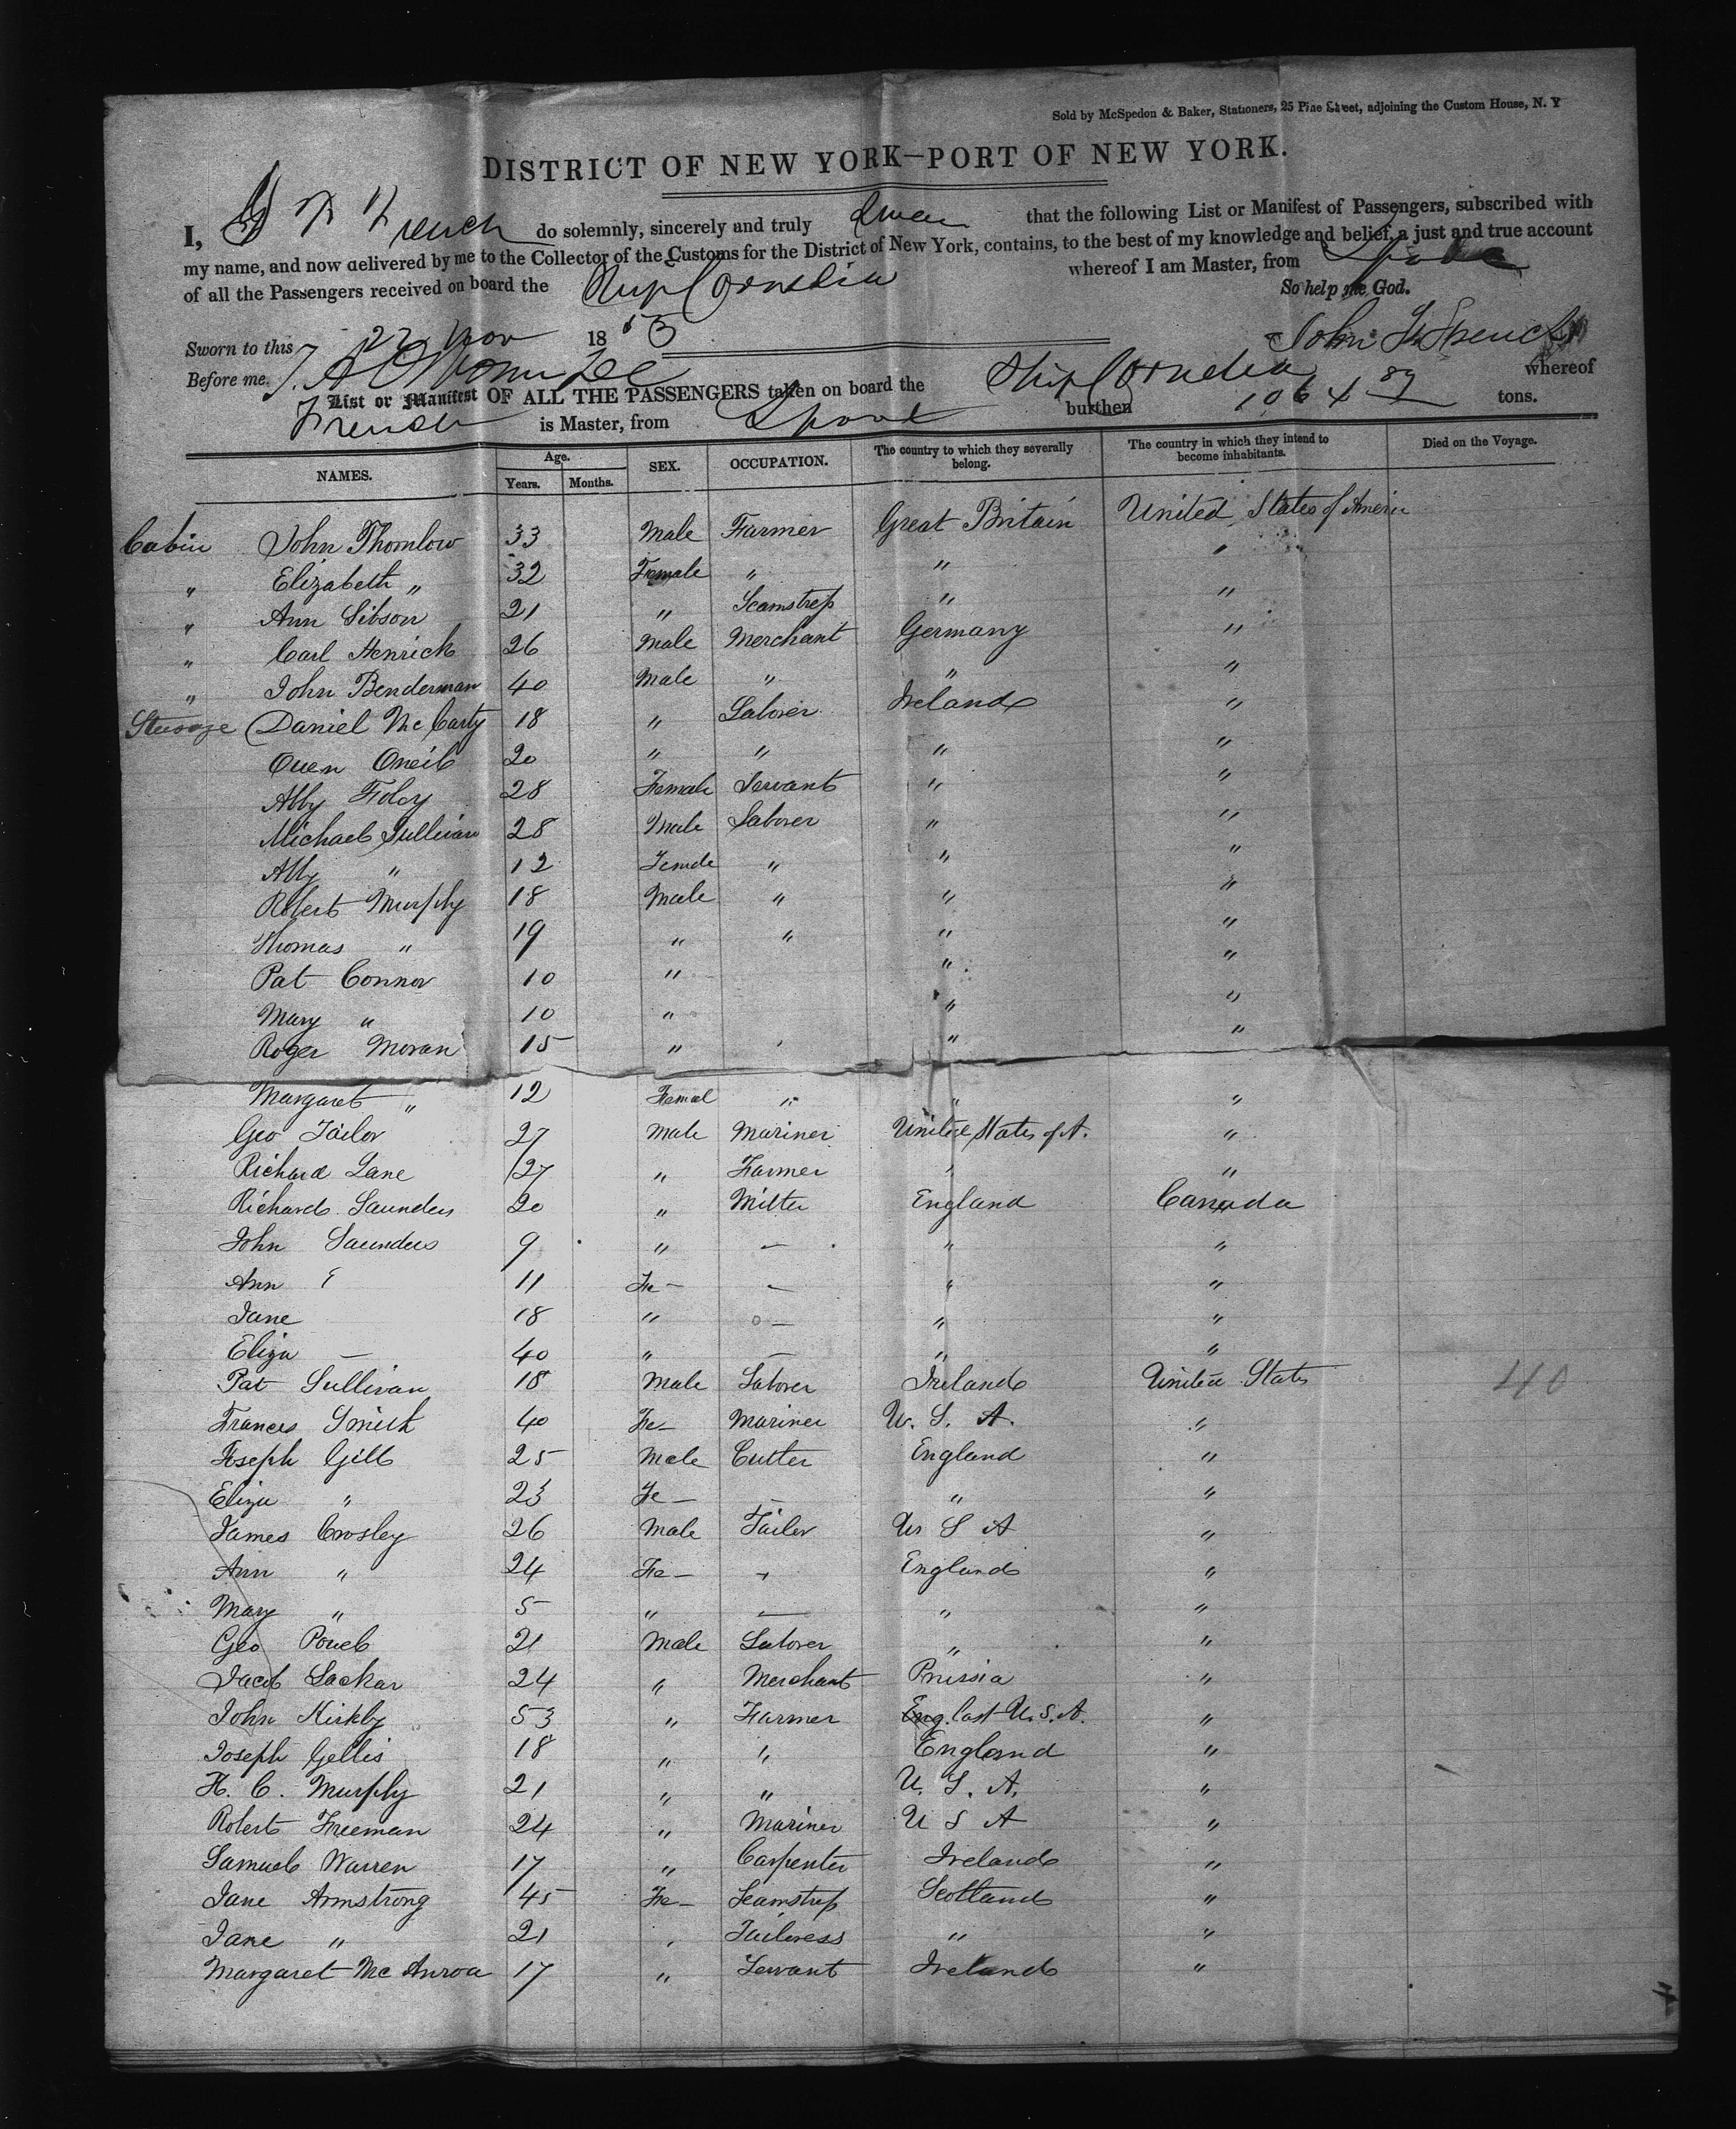 Sold by McSpedon & Baker, Stationers, 25 Pine Street, adjoining the Custom House, N. Y
DISTRICT OF NEW YORK—PORT OF NEW YORK.
I, French do solemnly, sincerely and truly swear that the following List or Manifest of Passengers, subscribed with
my name, and now delivered by me to the Collector of the Customs for the District of New York, contains, to the best of my knowledge and belief, a just and true account
of all the Passengers received on board the Ship Cornelia whereof I am Master, from Lpool
So help me God.
Sworn to this 22 Nov 1853
John F. French
Before me,
List or Manifest OF ALL THE PASSENGERS taken on board the Ship Cornelia whereof
French is Master, from Lpool burthen 1064 89 tons.
NAMES. Age. Years. Months. SEX. OCCUPATION. The country to which they severally belong. The country in which they intend to become inhabitants. Died on the Voyage.
Cabin John Thomlow 33 Male Farmer Great Britain United States of Americ
" Elizabeth " 32 Female " " "
" Ann Sibson 21 " Seamstress " "
" Carl Henrick 26 Male Merchant Germany "
" John Benderman 40 Male " " "
Steerage Daniel McCarty 18 " Laborer Ireland "
Owen Oneil 20 " " " "
Abby Foley 28 Female Servant " "
Michael Sullivan 28 Male Laborer " "
Abby " 12 Female " " "
Robert Murphy 18 Male " " "
Thomas " 19 " " " "
Pat Connor 10 " " "
Mary " 10 " " "
Roger Moran 15 " ' " "
Margaret " 12 Femal " " "
Geo Tailor 27 Male Mariner United States of A. "
Richard Lane 27 " Farmer ' "
Richard Saunders 20 " Miller England Canada
John Saunders 9 " — " "
Ann 11 Fe — — " "
Jane 18 " — " "
Eliza — 40 " — " "
Pat Sullivan 18 Male Laborer Ireland United States 40
Frances Smith 40 Fe — Mariner U. S. A. "
Joseph Gill 25 Male Cutter England "
Eliza " 23 Fe — — " "
James Crosley 26 Male Tailor U S A "
Ann " 24 Fe — England "
Mary " 5 " — " "
Geo Powel 21 Male Laborer " "
Jacob Lackar 24 " Merchant Prussia "
John Kirkby 53 " Farmer Eng. Cast U.S.A. "
Joseph Gellis 18 " " England "
H. C. Murphy 21 " " U. S. A. "
Robert Freeman 24 " Mariner U S A "
Samuel Warren 17 " Carpenter Ireland "
Jane Armstrong 45 Fe — Seamstress Scotland "
Jane " 21 " Tailoress " "
Margaret Mc Anroa 17 " Servant Ireland "